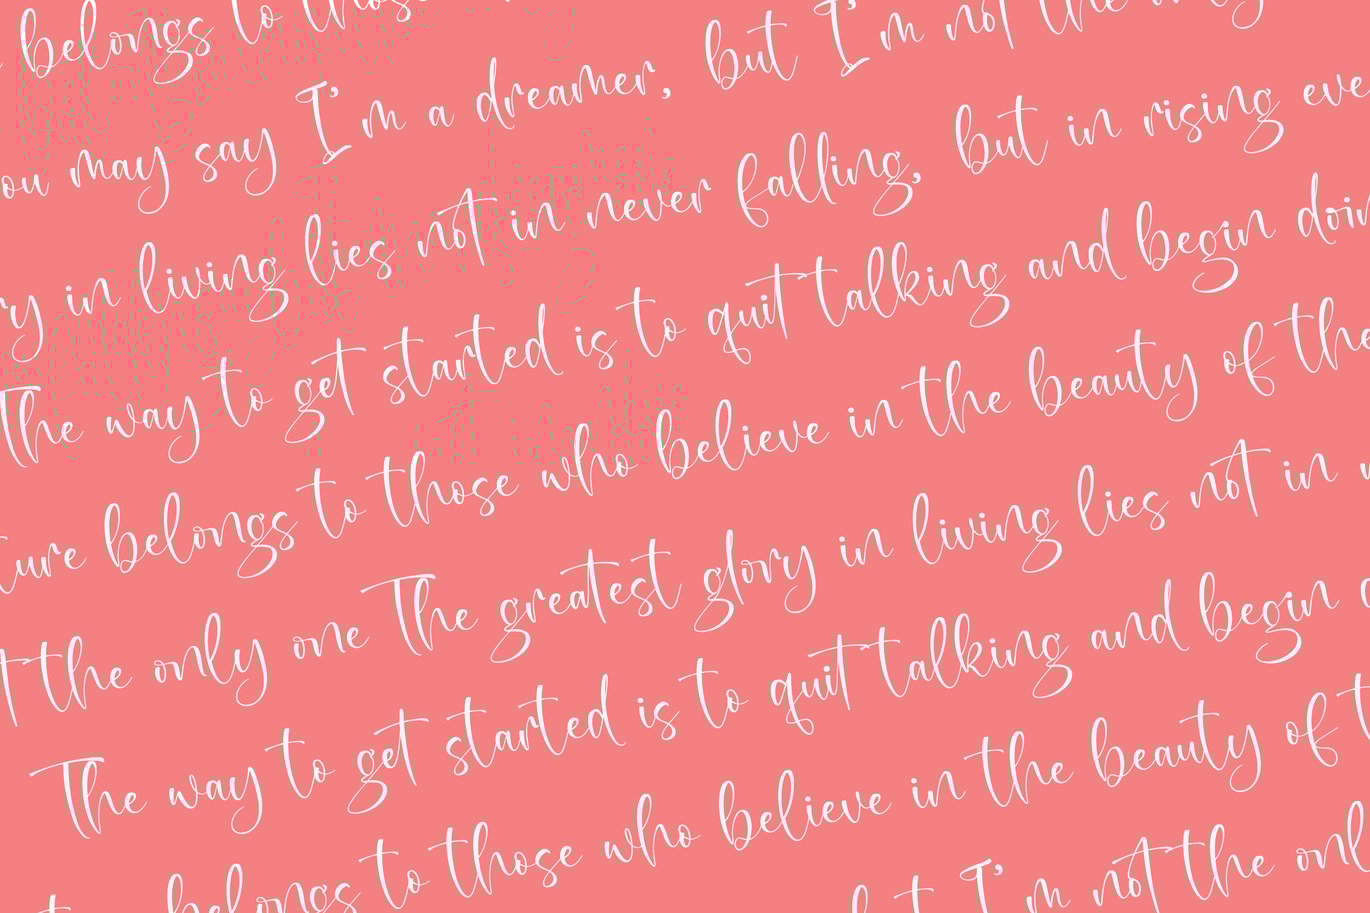 belongs to those
ou may say I'm a dreamer, but I'm not the
ry in living lies not in never falling, but in rising eve
The way to get started is to quit talking and begin doin
ture belongs to those who believe in the beauty of the
t the only one The greatest glory in living lies not in
The way to get started is to quit talking and begin
belongs to those who believe in the beauty of t
I'm not the onl